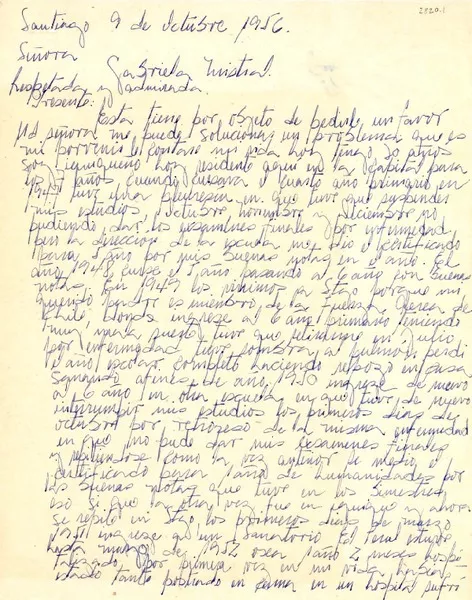 2320.1
Santiago 9 de Octubre 1956.
Señora
Gabriela Mistral.
Respetada y admirada.
Presente:
Esta tiene por objeto de pedirle un favor
Ud señora me puede solucionar un problema que es
mi porvenir le contare mi vida hoy tengo años
soy iquiqueño hoy residente aqui en la capital para
años cuando cursaba el cuarto año primario en
1947 tuve una pleuresia en que tuve que suspender
mis estudios, octubre noviembre y diciembre no
pudiendo dar los examenes finales por enfermedad
pero la direccion de la escuela me dio el certificado
para 5 año por mis buenas notas en 4 año. El
año 1948 curse el 5 año pasando al 6 año con buenas
notas. En 1949 los vinimos a Stgo porque mi
querido padre es miembro de la Fuerza Aerea de
Chile donde ingrese al 6 año primario teniendo
muy mala suerte tuve que retirarme en Julio
por enfermedad tuve sombra al pulmon, perdi
el año escolar completo haciendo reposo en casa
Sanando afines de año, 1950 ingrese de nuevo
al 6 año en una escuela en que tuve de nuevo
interrumpir mis estudios los primeros dias de
octubre por retroceso de la misma enfermedad
en que no pude dar mis examenes finales
y repitiendose como la vez anterior se me dio el
certificado para 1 año de humanidades por
las buenas notas que tuve en los semestres
eso si que la otra vez fue en Iquique y ahora
se repitio en Stgo, los primeros dias de marzo
1951 ingrese a un Sanatorio El Peral estuve
hasta mayo de 1952 osea 1 año 2 meses hospi
talizado, por primera vez en mi vida habia
estado tanto postrado en cama en un hospital sufri